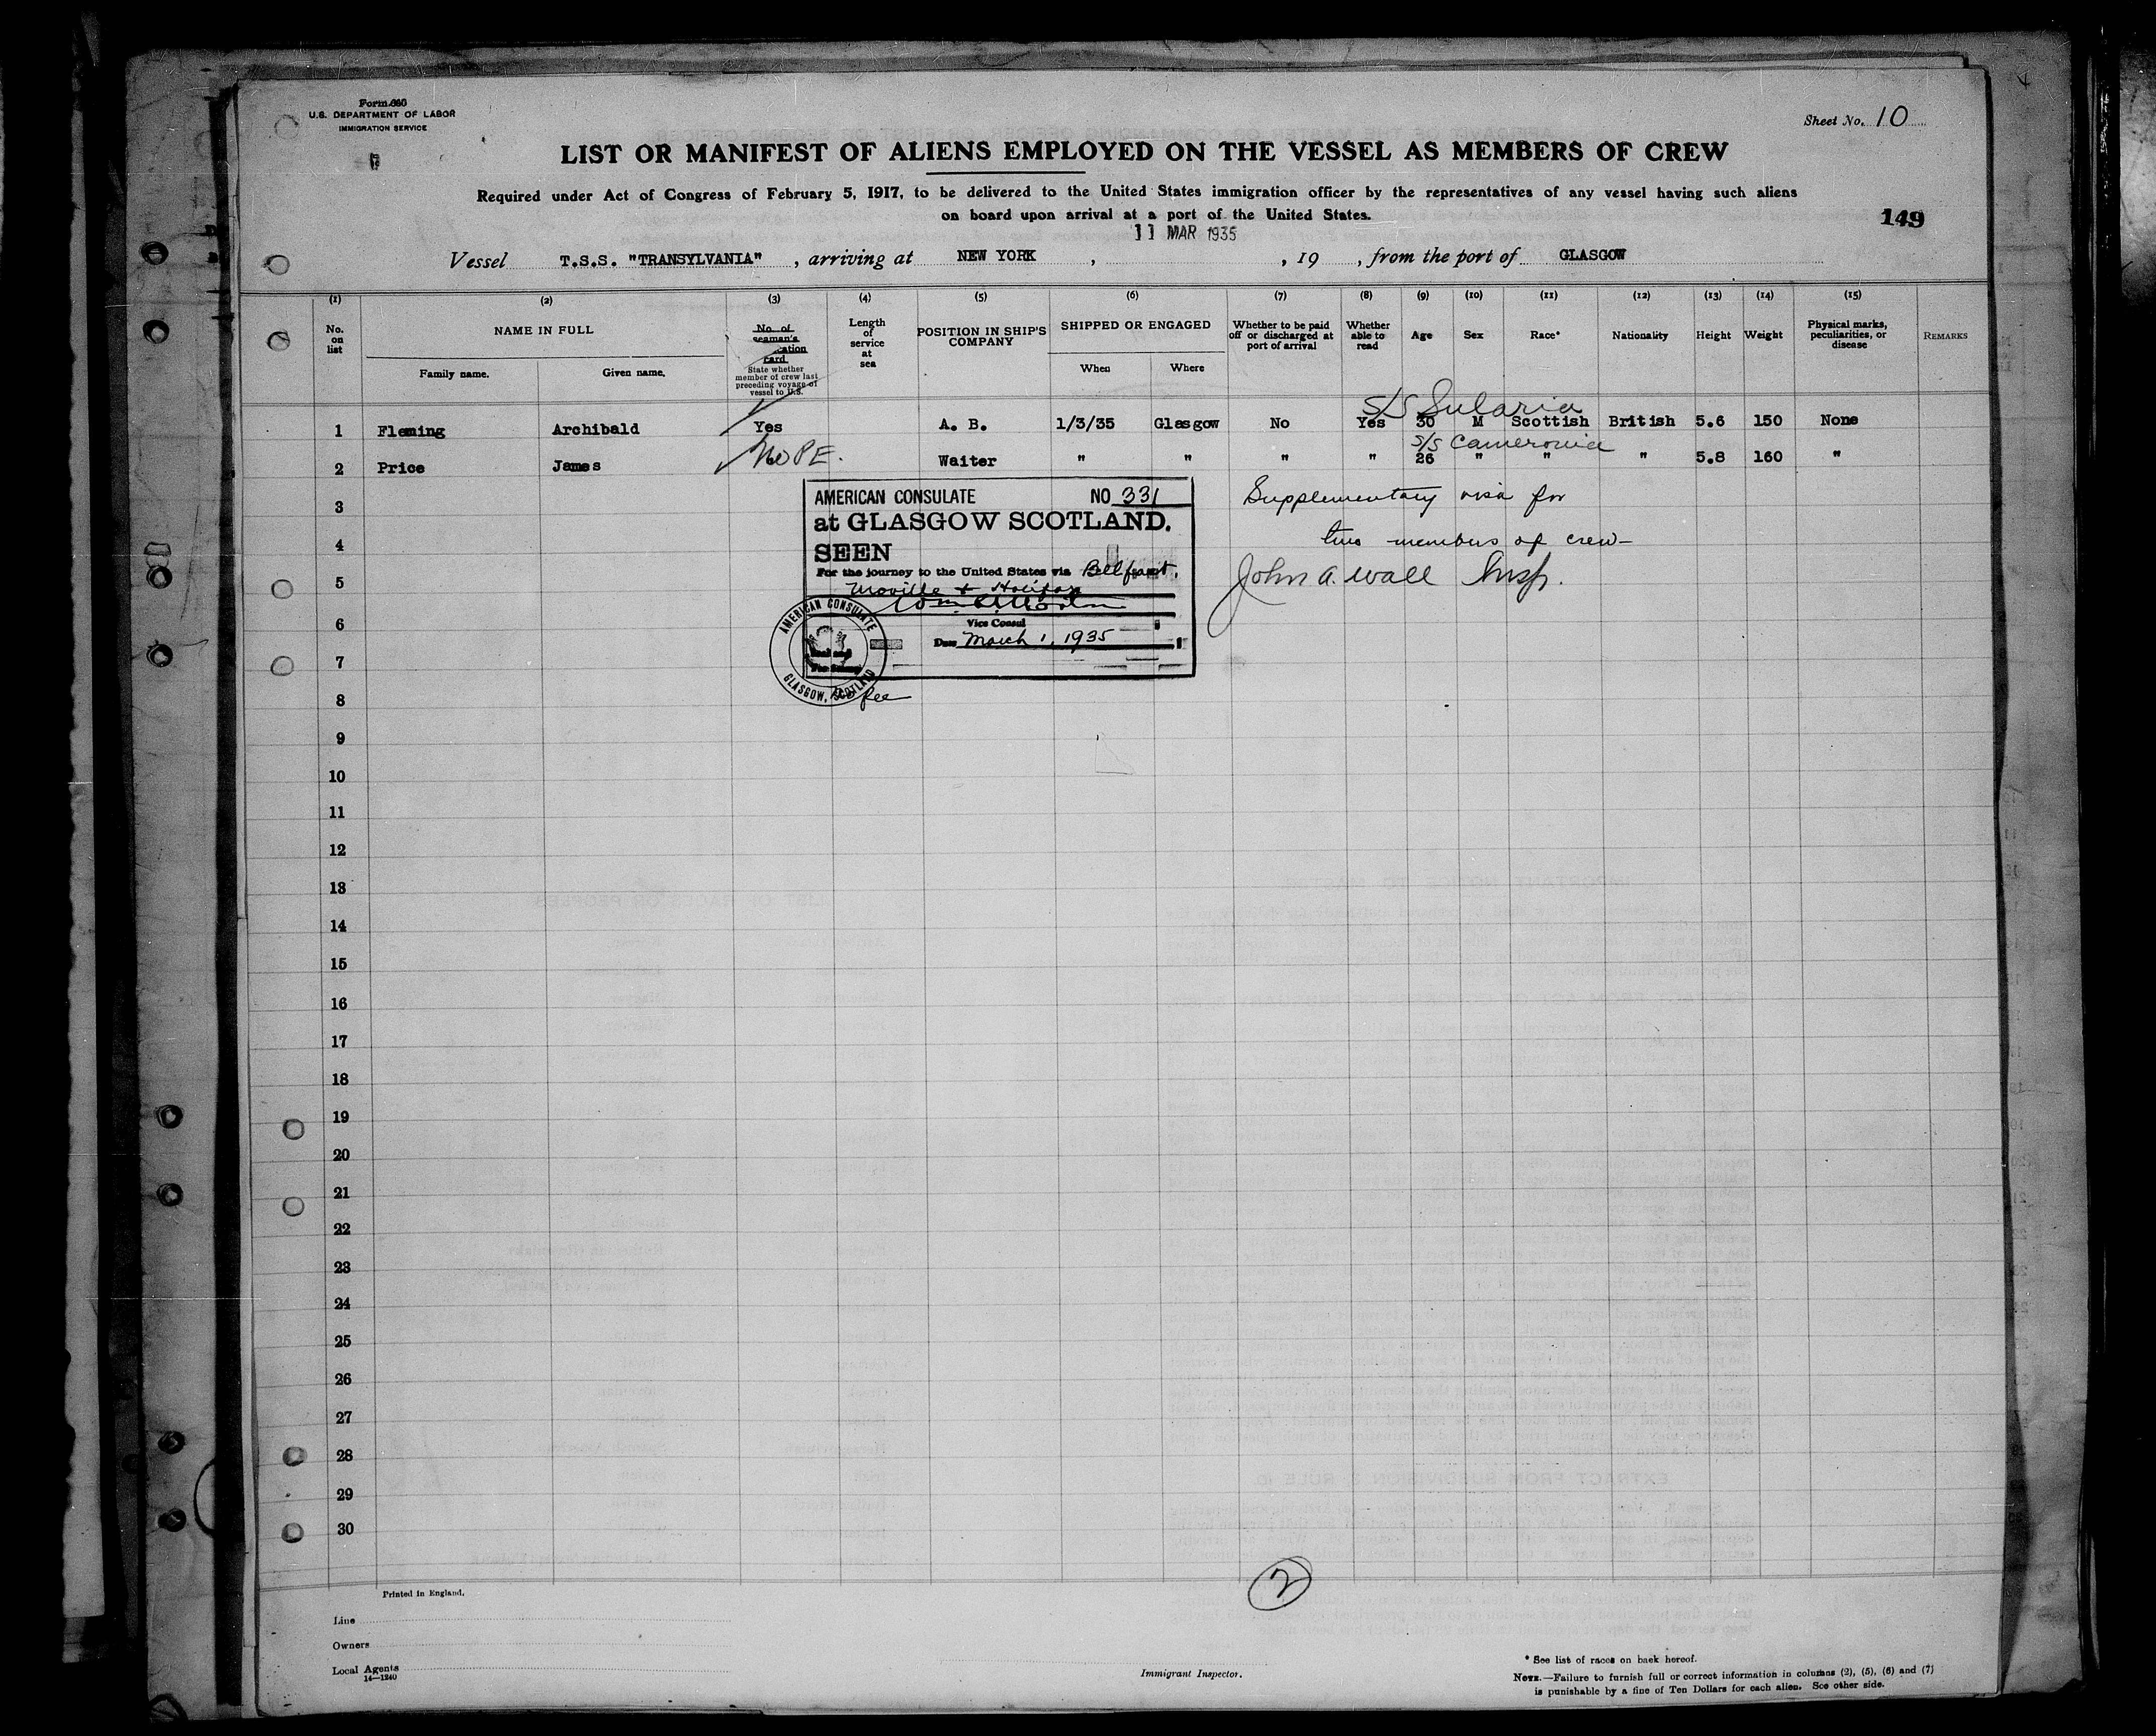 Form 680
U.S. DEPARTMENT OF LABOR
IMMIGRATION SERVICE
Sheet No. 10
LIST OR MANIFEST OF ALIENS EMPLOYED ON THE VESSEL AS MEMBERS OF CREW
Required under Act of Congress of February 5, 1917, to be delivered to the United States immigration officer by the representatives of any vessel having such aliens
on board upon arrival at a port of the United States.
149
11 MAR 1935
Vessel T.S.S. "TRANSYLVANIA" , arriving at NEW YORK , , 19 , from the port of GLASGOW
(1) (2) (3) (4) (5) (6) (7) (8) (9) (10) (11) (12) (13) (14) (15)
No. on list
NAME IN FULL
Family name. Given name.
No. of seaman's card
State whether member of crew last preceding voyage of vessel to U.S.
Length of service at sea
POSITION IN SHIP'S COMPANY
SHIPPED OR ENGAGED
When Where
Whether to be paid off or discharged at port of arrival
Whether able to read
Age
Sex
Race*
Nationality
Height
Weight
Physical marks, peculiarities, or disease
REMARKS
S/S Sularia
1 Fleming Archibald Yes A. B. 1/3/35 Glasgow No Yes 30 M Scottish British 5.6 150 None
S/S Cameronia
2 Price James No PE. Waiter " " " " 26 " " " 5.8 160 "
3
4
5
6
7
8
AMERICAN CONSULATE NO 331
at GLASGOW SCOTLAND.
SEEN
For the journey to the United States via Belfast,
Moville & Halifax
Vice Consul
Date March 1, 1935
AMERICAN CONSULATE
GLASGOW, SCOTLAND
No fee
Supplementary visa for
two members of crew—
John A. Wall Insp.
9
10
11
12
13
14
15
16
17
18
19
20
21
22
23
24
25
26
27
28
29
30
2
Printed in England.
Line
Owners
Local Agents
14—1240
Immigrant Inspector.
* See list of races on back hereof.
NOTE.—Failure to furnish full or correct information in columns (2), (5), (6) and (7)
is punishable by a fine of Ten Dollars for each alien. See other side.